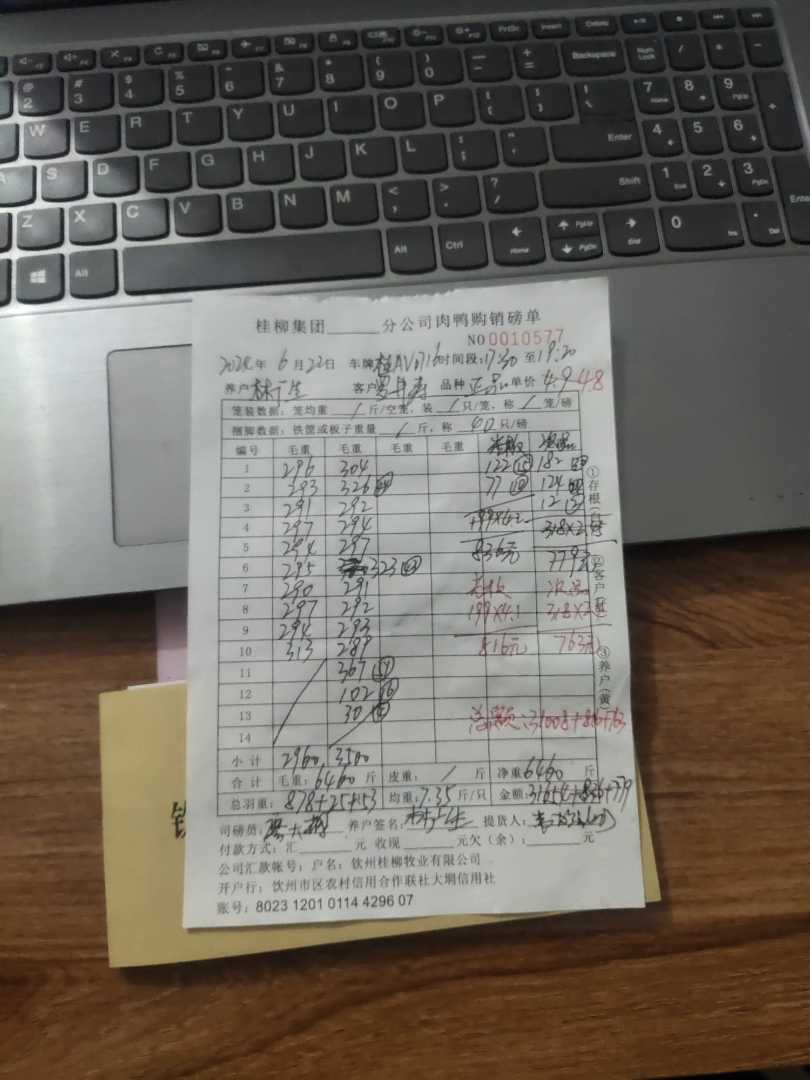 桂柳集团______分公司肉鸭购销磅单
NO 0010577
2024年 6月22日 车牌桂AV0716时间段:17:30至19:20
养户 客户 品种 正品 单价 4.9 4.8
笼装数据:笼均重 / 斤/空笼,装 / 只/笼,称 / 笼/磅
捆脚数据:铁筐或板子重量 / 斤,称 40 只/磅
编号 毛重 毛重 毛重 毛重 次品
1 296 304 122 ⑮ 182
2 293 326 77 ⑩ 124
3 291 292 12 ②
4 297 294 199×4.2
5 294 297 836元
6 295 323 779元
7 290 291 次品
8 297 292 199×4.1
9 294 293
10 313 289 816元 763元
11 367
12 102
13 30
14
总额:31008+816+763
小计 2960 3500
合计 毛重:6460斤 皮重: / 斤 净重6460斤
总羽重:878+25+53 均重:7.35斤/只 金额:31654+836+779
司磅员: 养户签名: 提货人:
付款方式:汇______元 收现______元欠(余):______元
公司汇款帐号:户名:钦州桂柳牧业有限公司
开户行:钦州市区农村信用合作联社大垌信用社
账号:8023 1201 0114 4296 07
①存根(白) ②客户 ③养户(黄)